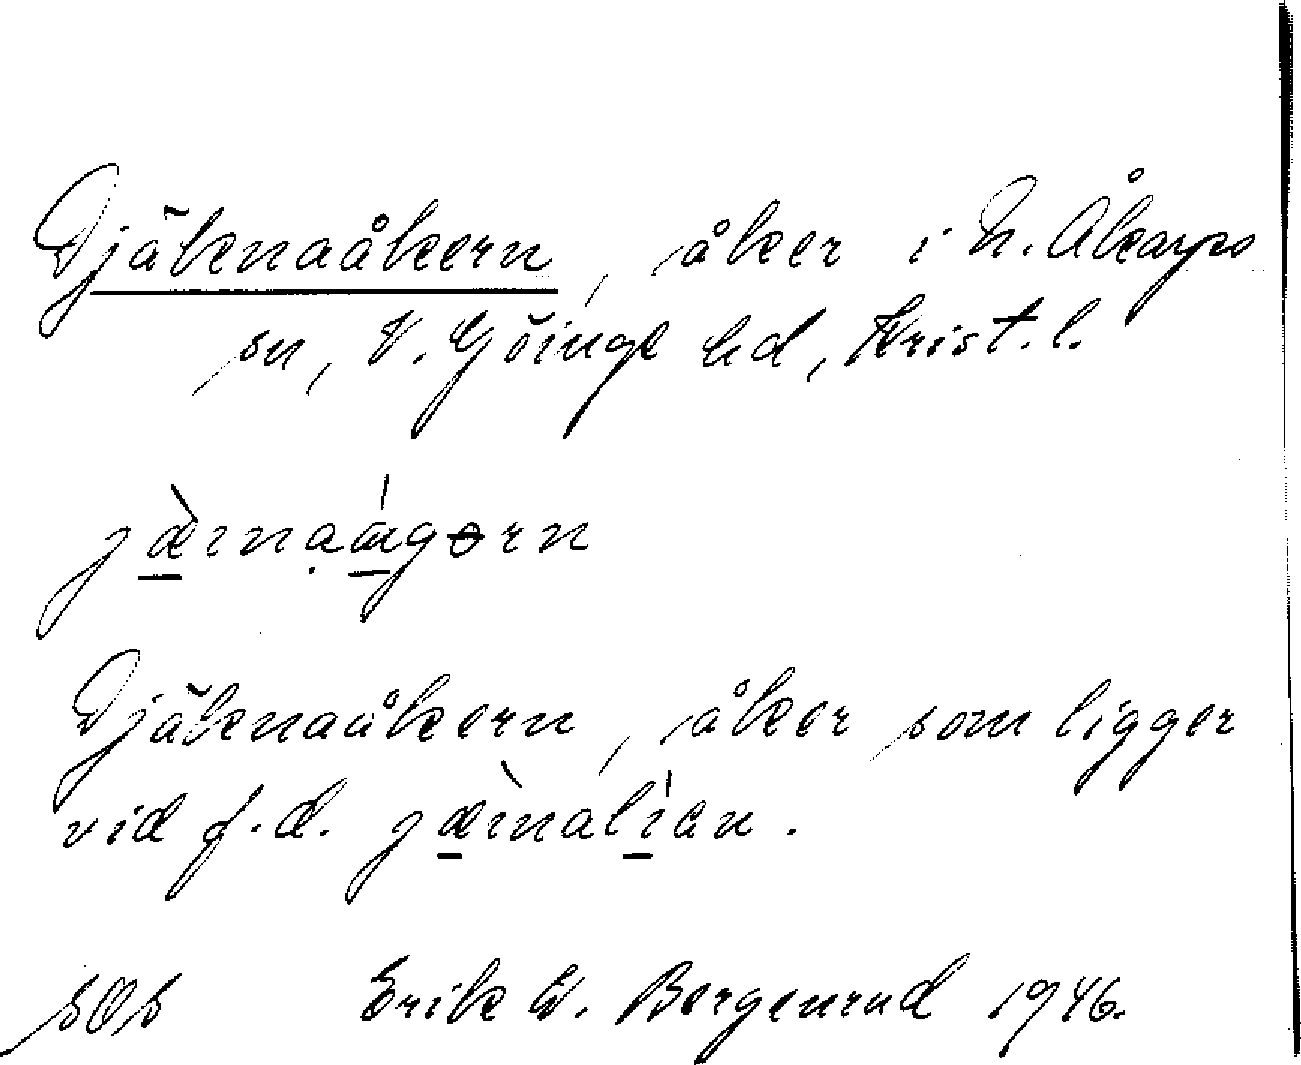 Djäknaåkern, åker i N. Åkarps
sn, V. Göinge hd, Krist. l.
jæ̀ɪnaǻgɵrn
Djäknaåkern, åker som ligger
vid f.d. jæ̀ɪnalían.
SOS Erik W. Bergenrud 1946.